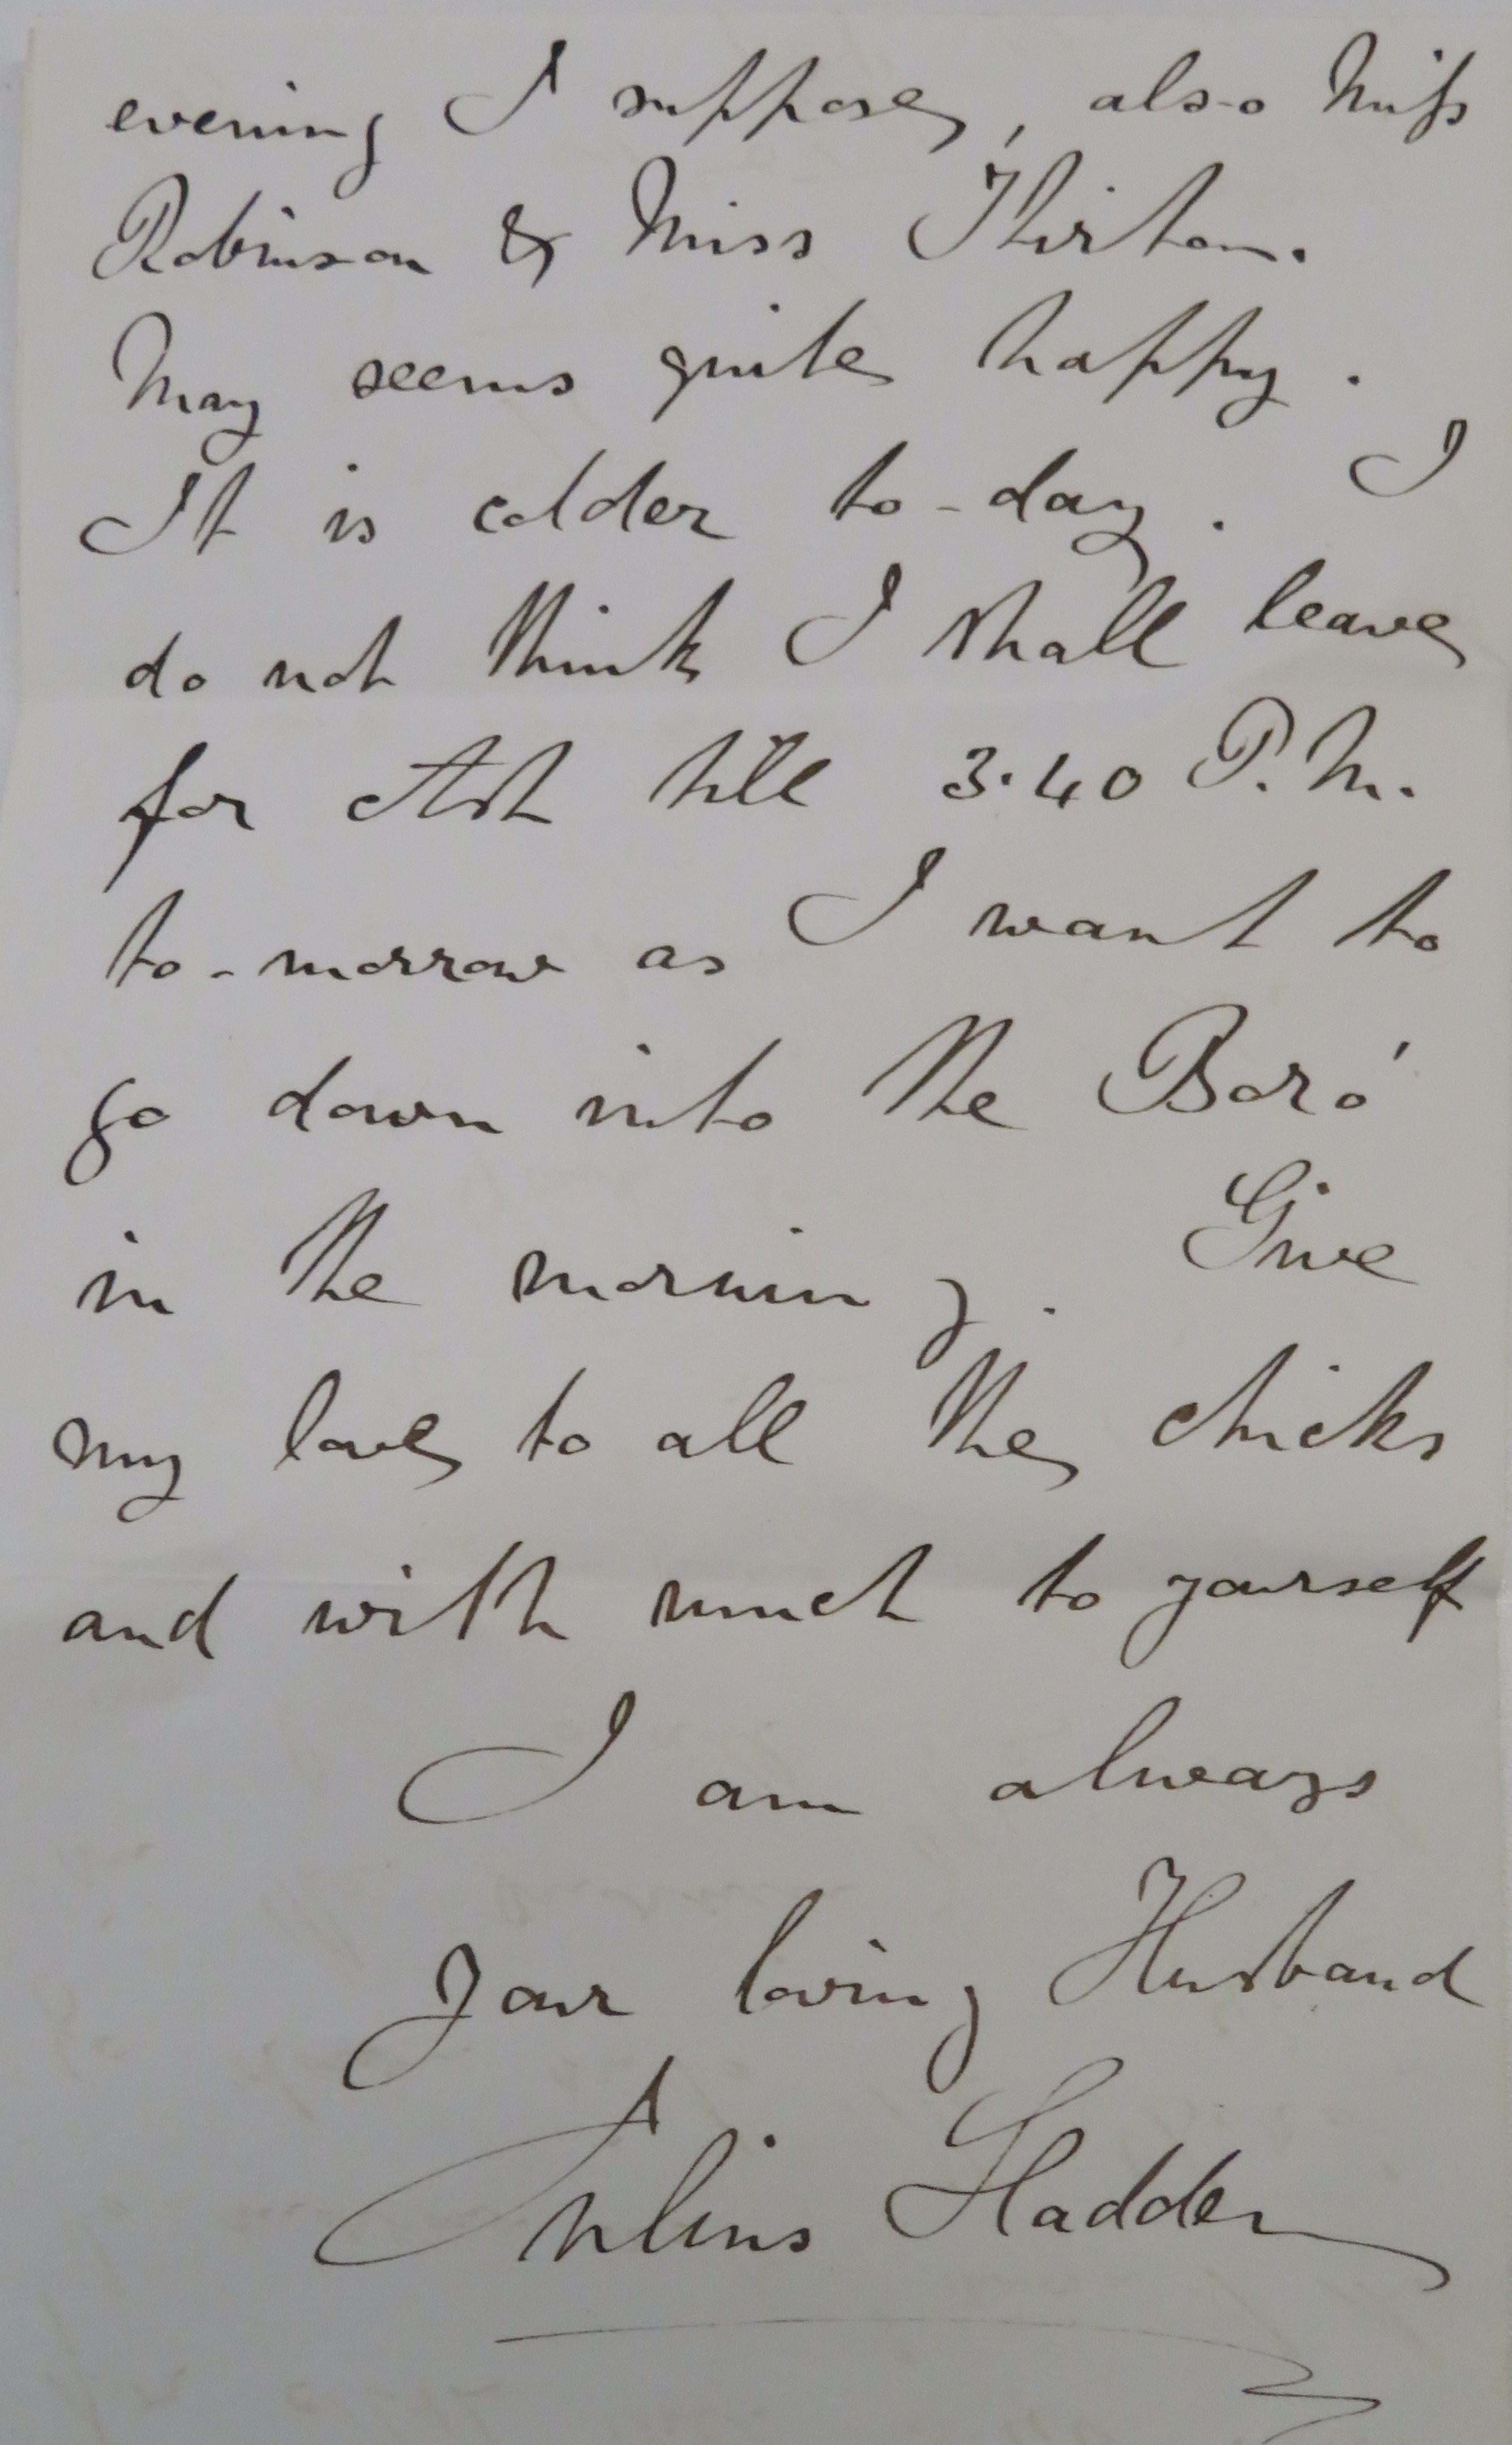 evening I suppose, also Miss
Robinson & Miss Thirton.
May seems quite happy.
It is colder to-day. I
do not think I shall leave
for Ash till 3.40 P.M.
to-morrow as I want to
go down into the Boro'
in the morning. Give
my love to all the chicks
and with much to yourself
I am always
Your loving Husband
Julius Hadden